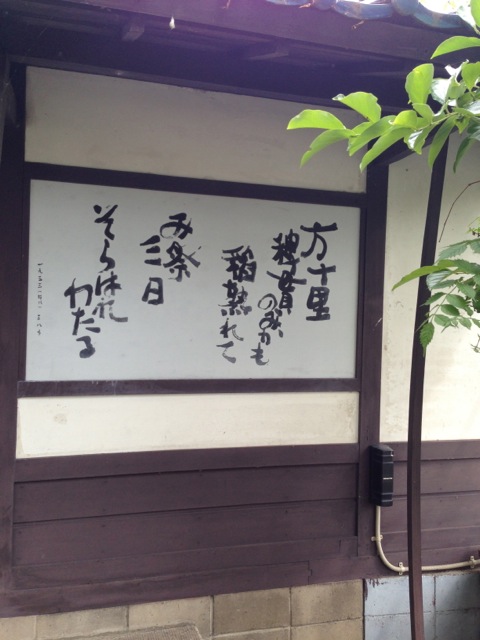 方十里
稗貫のみかも
稲熟れて
み祭三日
そらはれわたる